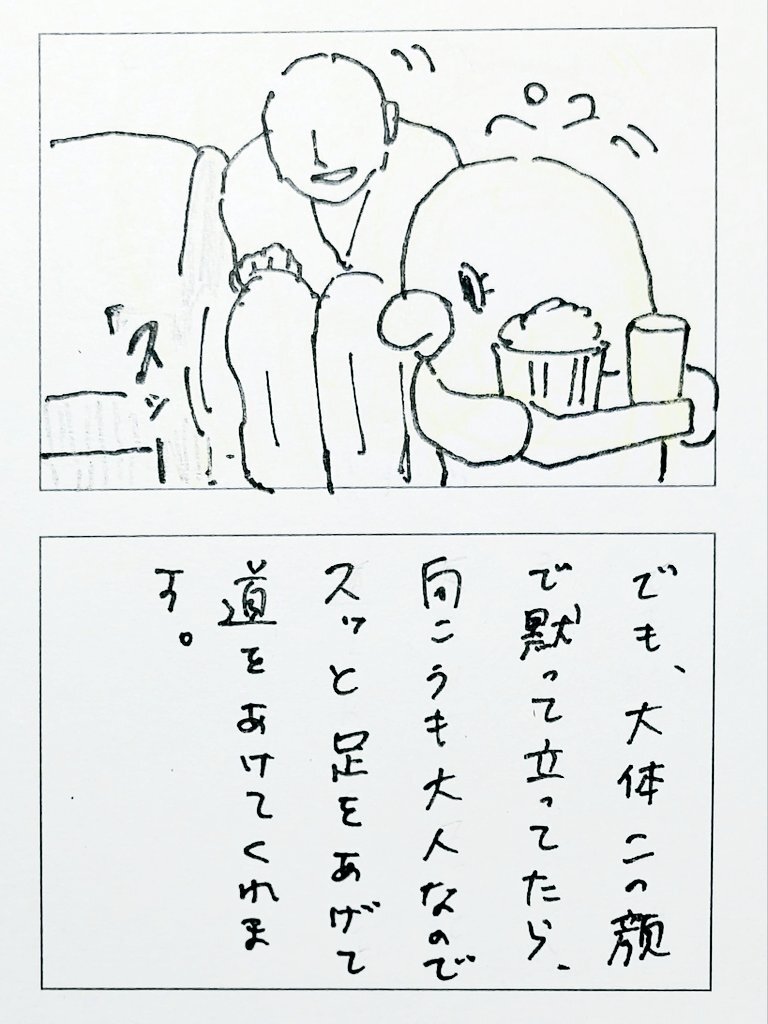 ペコ
スッ
でも、大体この顔
で黙って立ってたら、
向こうも大人なので
スッと足をあげて
道をあけてくれま
す。